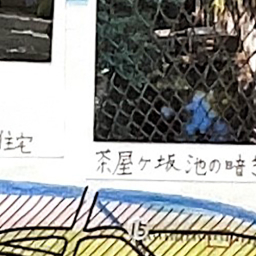 住宅
茶屋ヶ坂池の暗き
15